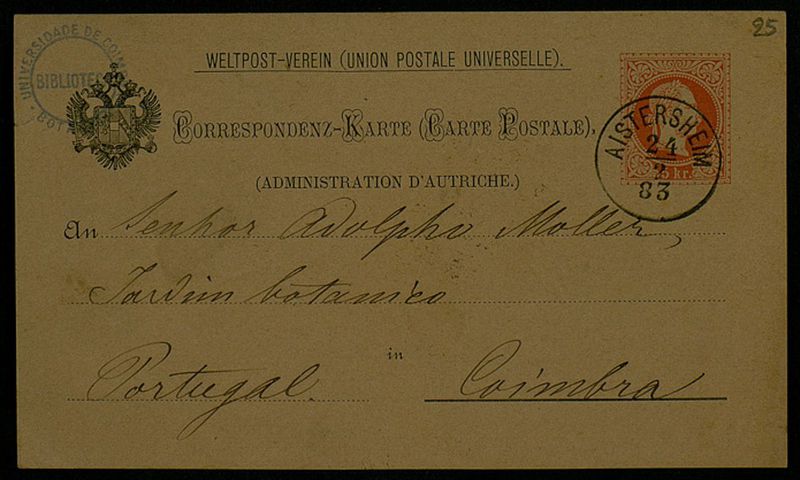 25
UNIVERSIDADE DE COIM
BIBLIOTE
BOT
WELTPOST-VEREIN (UNION POSTALE UNIVERSELLE).
CORRESPONDENZ-KARTE (CARTE POSTALE),
(ADMINISTRATION D'AUTRICHE.)
5 kr.
AISTERSHEIM
24
2
83
An Senhor Adolpho Moller,
Jardim botanico
in
Portugal. Coimbra